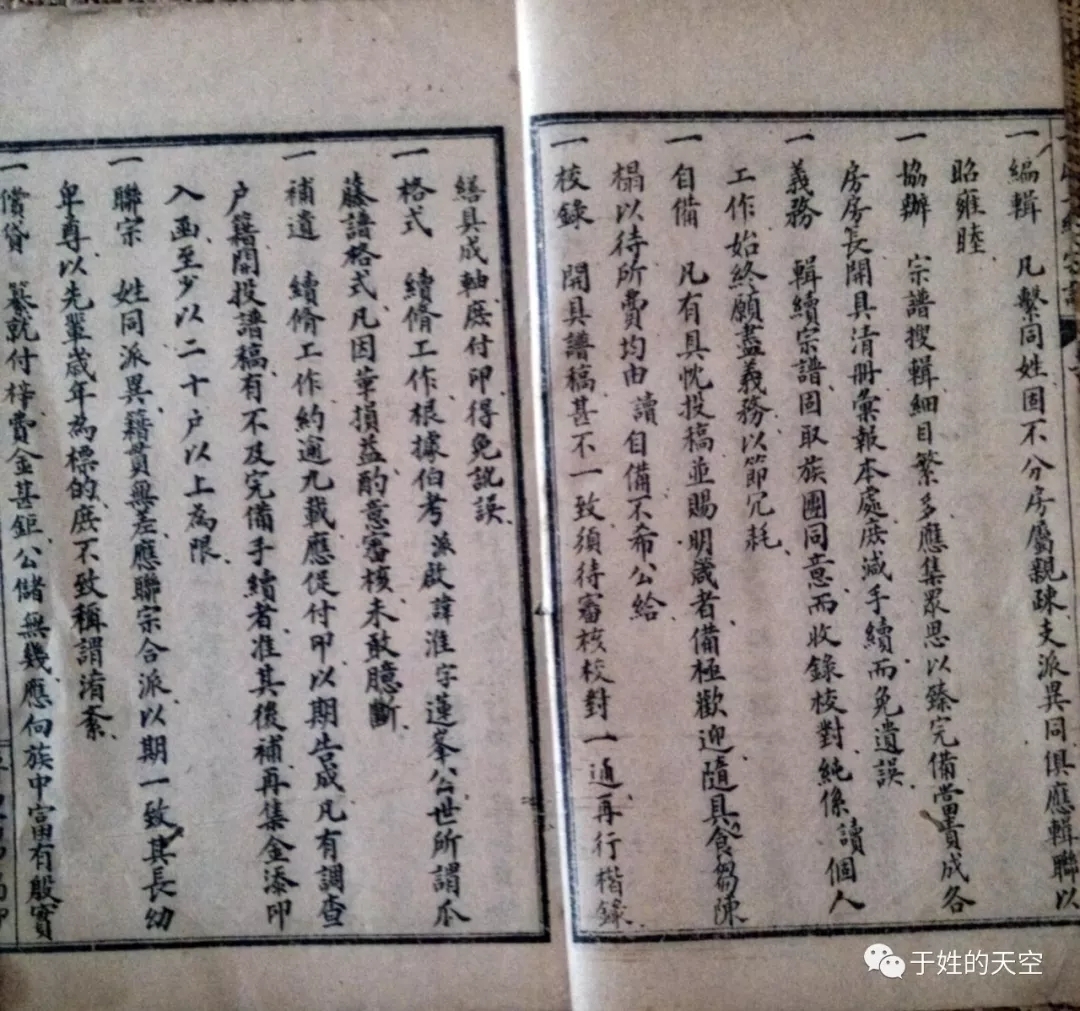 一編輯 凡繫同姓固不分房屬親疎支派異同俱應輯聯以
昭雍睦
一協辦 宗譜搜輯細目繁多應集眾思以臻完備當責成各
房房長開具清冊彙報本處庶減手續而免遺誤
一義務 輯續宗譜固取族團同意而收錄校對純係讀個人
工作始終願盡義務以節冗耗
一自備 凡有具忱投稿並賜明箴者備極歡迎隨具食芻陳
榻以待所費均由讀自備不希公給
一校錄 開具譜稿甚不一致須待審核校對一通再行楷錄
繕具成軸庶付印得免訛誤
一格式 續脩工作根據伯考派啟諱淮字蓮峯公世所謂爪
藤譜格式凡因革損益酌意審核未敢臆斷
一補遺 續脩工作約逾九載應促付印以期告成凡有調查
户籍開投譜稿有不及完備手續者准其後補再集金添印
入函至少以二十户以上為限
一聯宗 姓同派異籍貫無左應聯宗合派以期一致其長幼
卑尊以先輩歲年為標的庶不致稱謂淆紊
一償貸 纂就付梓費金甚鉅公儲無幾應向族中富有殷實
于姓的天空